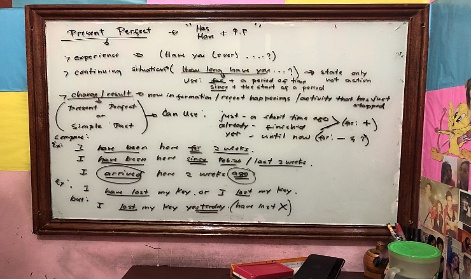 Present Perfect → "Has
Have + P.P"
> experience ⇒ (Have you (ever) ....?)
> continuing situations (How long have you ...?) → state only
Use: for + a period of time not action
since + the start of a period
> change / result → new information / recent happenings / activity that has just stopped
Present Perfect
or
Simple Past
→ Can Use:
just - a short time ago
already - finished (for: +
yet - until now (for: - & ?
Compare:
Ex: I have been here for 2 weeks.
I have been here since / last 2 weeks.
I arrived here 2 weeks ago
Ex: I have lost my key. or I lost my key.
but: I lost my key yesterday. (have lost X)